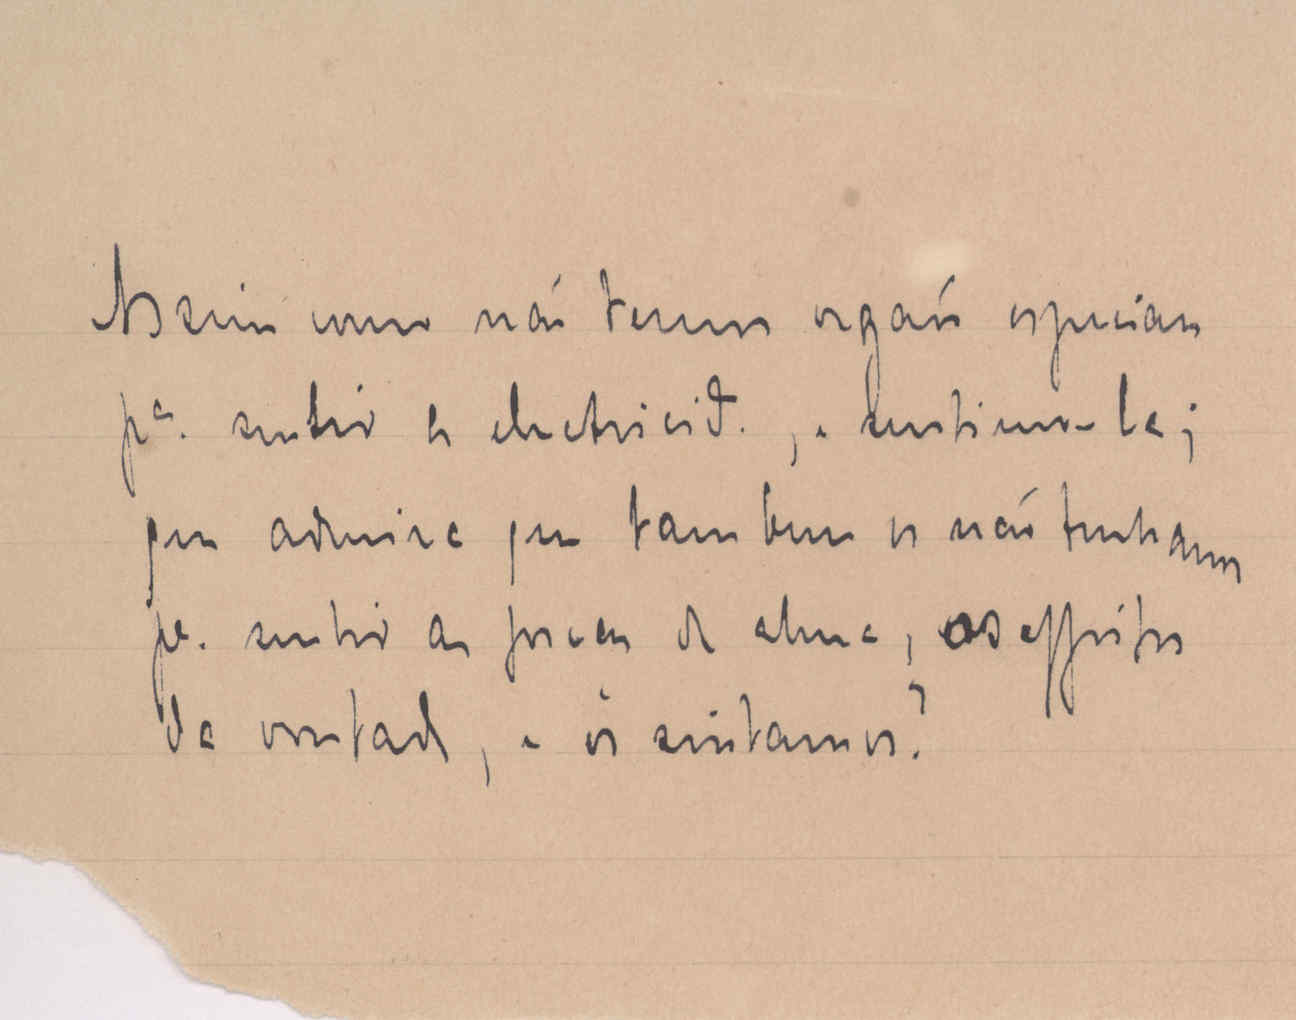 Assim como não temos orgão especiaes
pª. sentir a electricid. , e sentimo-la;
que admira que tambem os não tenhamos
pª. sentir as forças da alma, os effeitos
da vontade, e os sintamos?